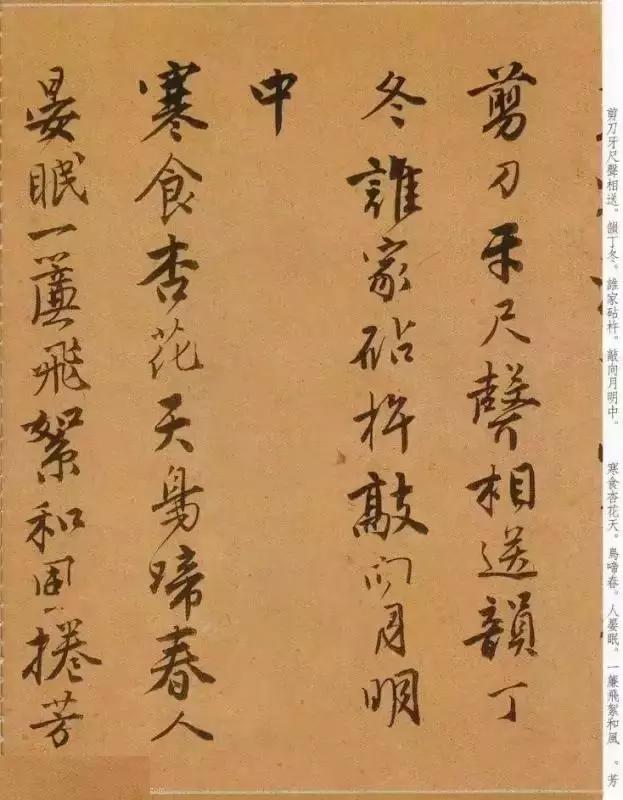 剪刀牙尺聲相送。韻丁冬。誰家砧杵。敲向月明中。　寒食杏花天。鳥啼春。人晏眠。一簾飛絮和風　。芳
剪刀牙尺聲相送韻丁
冬誰家砧杵敲向月明
中
寒食杏花天鳥啼春人
晏眠一簾飛絮和風捲芳